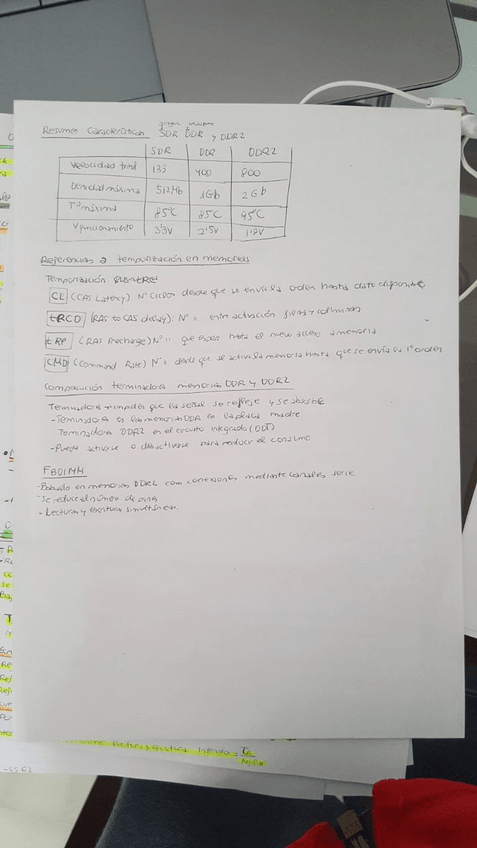 Resumen Características SDR DDR y DDR2
SDR DDR DDR2
Velocidad total 133 400 800
Densidad máxima 512Mb 1Gb 2Gb
Tª máxima 85ºC 85ºC 95ºC
V funcionamiento 3'3V 2'5V 1'8V
Referencias a temporización en memorias
Temporización
CL (CAS Latency) Nº ciclos desde que se envía la orden hasta dato disponible
tRCD (RAS to CAS delay): Nº " entre activación filas y columnas
tRP (RAS Precharge) Nº " que esperan hasta el nuevo acceso a memoria
CMD (Command Rate) Nº " desde que se activa la memoria hasta que se envía la 1ª orden
Comparación terminadora memorias DDR y DDR2
Terminadora impide que la señal se refleje y se absorbe
- Terminadora en las memorias DDR en la placa madre
Terminadora DDR2 en el circuito integrado (ODT)
- Puede activarse o desactivarse para reducir el consumo
FBDIMM
- Basado en memorias DDR2 con conexiones mediante canales serie
- Se reduce el número de pines
- Lecturas y escritura simultáneas.